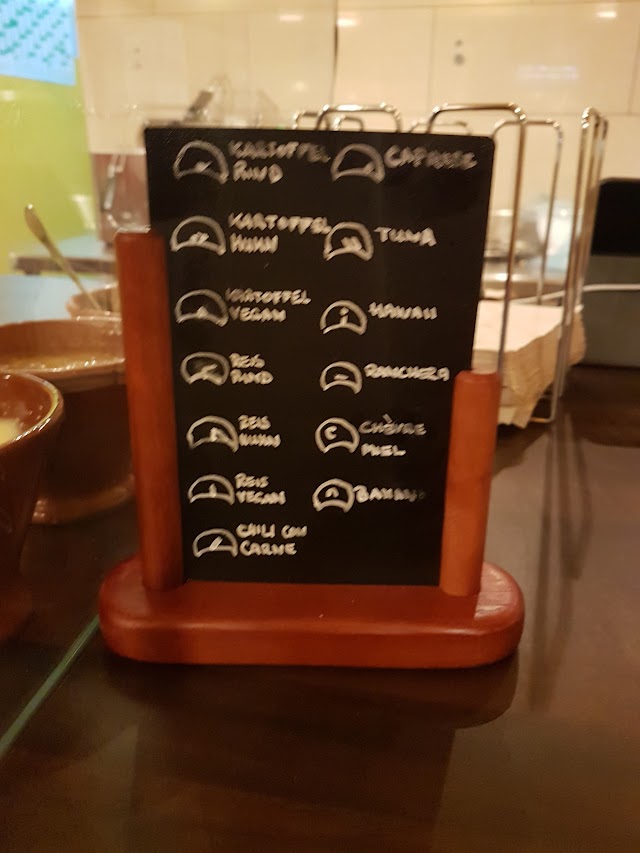 KARTOFFEL
RIND
KARTOFFEL
HUHN
KARTOFFEL
VEGAN
REIS
RIND
REIS
HUHN
REIS
VEGAN
CHILI CON
CARNE
CAPRESE
TUNA
HAWAII
RANCHERA
CHÈVRE
MIEL